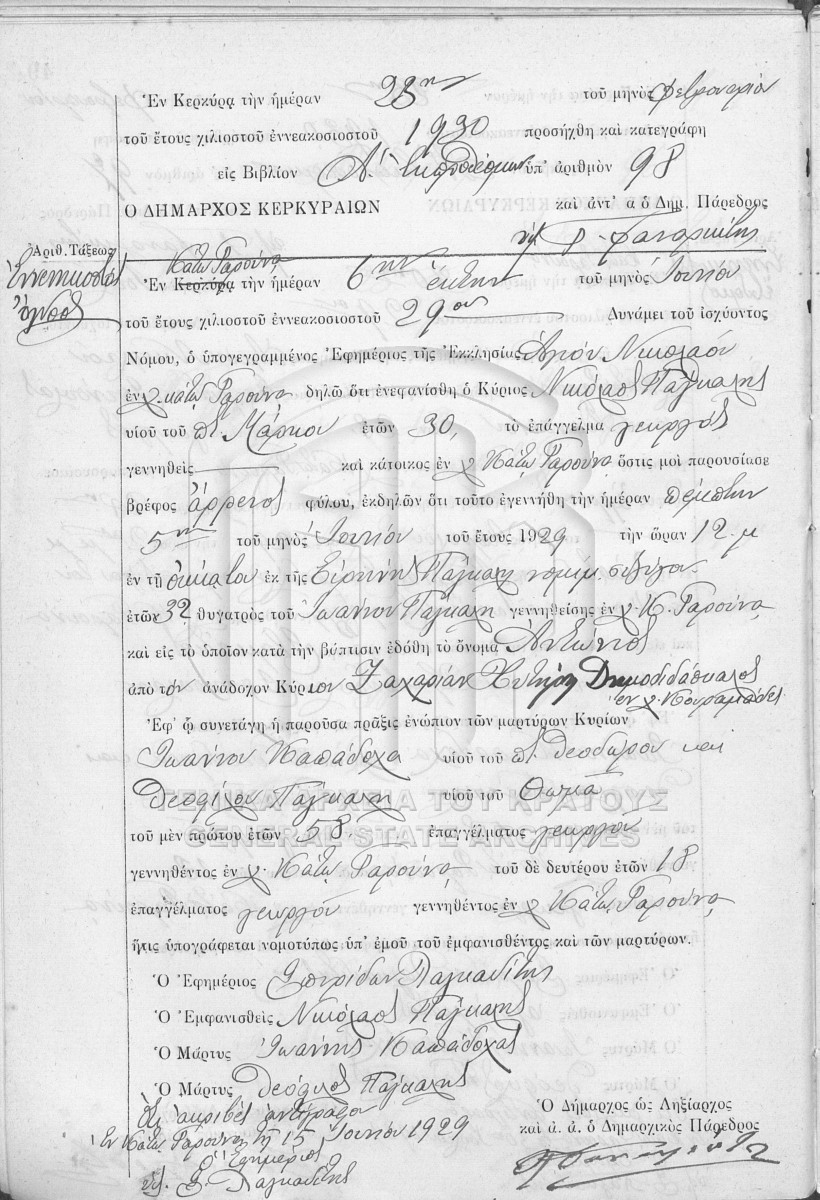 Ἐν Κερκύρᾳ τὴν ἡμέραν 28ην τοῦ μηνὸς Φεβρουαρίου
τοῦ ἔτους χιλιοστοῦ ἐννεακοσιοστοῦ 1930 προσήχθη καὶ κατεγράφη
εἰς Βιβλίον Α. ὑπ' ἀριθμὸν 98
Ο ΔΗΜΑΡΧΟΣ ΚΕΡΚΥΡΑΙΩΝ καὶ ἀντ' α ὁ Δημ. Πάρεδρος
Ἀριθ. Τάξεως
Ἐννενηκοστὸς ὄγδοος
Κάτω Γαρούνα
Ἐν Κερκύρᾳ τὴν ἡμέραν 6ην ἕκτην τοῦ μηνὸς Ἰουνίου
τοῦ ἔτους χιλιοστοῦ ἐννεακοσιοστοῦ 29ου Δυνάμει τοῦ ἰσχύοντος
Νόμου, ὁ ὑπογεγραμμένος Ἐφημέριος τῆς Ἐκκλησίας Ἁγίου Νικολάου
ἐν χ. Κάτω Γαρούνα δηλῶ ὅτι ἐνεφανίσθη ὁ Κύριος Νικόλαος Πάγκαλης
υἱοῦ τοῦ π. Μάρκου ἐτῶν 30, τὸ ἐπάγγελμα γεωργὸς
γεννηθεὶς καὶ κάτοικος ἐν χ Κάτω Γαρούνα ὅστις μοὶ παρουσίασε
βρέφος ἄρρενος φύλου, ἐκδηλῶν ὅτι τοῦτο ἐγεννήθη τὴν ἡμέραν πέμπτην
5ην τοῦ μηνὸς Ἰουνίου τοῦ ἔτους 1929 τὴν ὥραν 12. μ
ἐν τῇ οἰκίᾳ του ἐκ τῆς Εἰρήνης Πάγκαλη νομιμ. συζύγου
ἐτῶν 32 θυγατρὸς τοῦ Ἰωάννου Πάγκαλη γεννηθείσης ἐν χ. Κ. Γαρούνα
καὶ εἰς τὸ ὁποῖον κατὰ τὴν βύπτισιν ἐδόθη τὸ ὄνομα Ἀντώνιος
ἀπὸ τὸν ἀνάδοχον Κύριον Ζαχαρίαν Δημοδιδάσκαλος
ἐν χ. Κουραμάδες
Ἐφ' ᾧ συνετάγη ἡ παροῦσα πρᾶξις ἐνώπιον τῶν μαρτύρων Κυρίων
Ἰωάννου Καπάδοχα υἱοῦ τοῦ π. Θεοδώρου καὶ
Θεοφίλου Πάγκαλη υἱοῦ τοῦ Θωμᾶ
ΓΕΝΙΚΑ ΑΡΧΕΙΑ ΤΟΥ ΚΡΑΤΟΥΣ
GENERAL STATE ARCHIVES
τοῦ μὲν πρώτου ἐτῶν 58, ἐπαγγέλματος γεωργοῦ
γεννηθέντος ἐν χ. Κάτω Γαρούνα τοῦ δὲ δευτέρου ἐτῶν 18
ἐπαγγέλματος γεωργοῦ γεννηθέντος ἐν χ Κάτω Γαρούνα
ἥτις ὑπογράφεται νομοτύπως ὑπ' ἐμοῦ τοῦ ἐμφανισθέντος καὶ τῶν μαρτύρων.
Ὁ Ἐφημέριος Σπυρίδων Παγκαδίτης
Ὁ Ἐμφανισθεὶς Νικόλαος Πάγκαλης
Ὁ Μάρτυς Ἰωάννης Καπάδοχας
Ὁ Μάρτυς Θεόφιλος Πάγκαλης
Δι' ἀκριβὲς ἀντίγραφον
Ἐν Κάτω Γαρούνα τῇ 15 Ἰουνίου 1929
Ὁ Ἐφημέριος
Σ. Παγκαδίτης
Ὁ Δήμαρχος ὡς Ληξίαρχος
καὶ ἀ. ἀ. ὁ Δημαρχικὸς Πάρεδρος